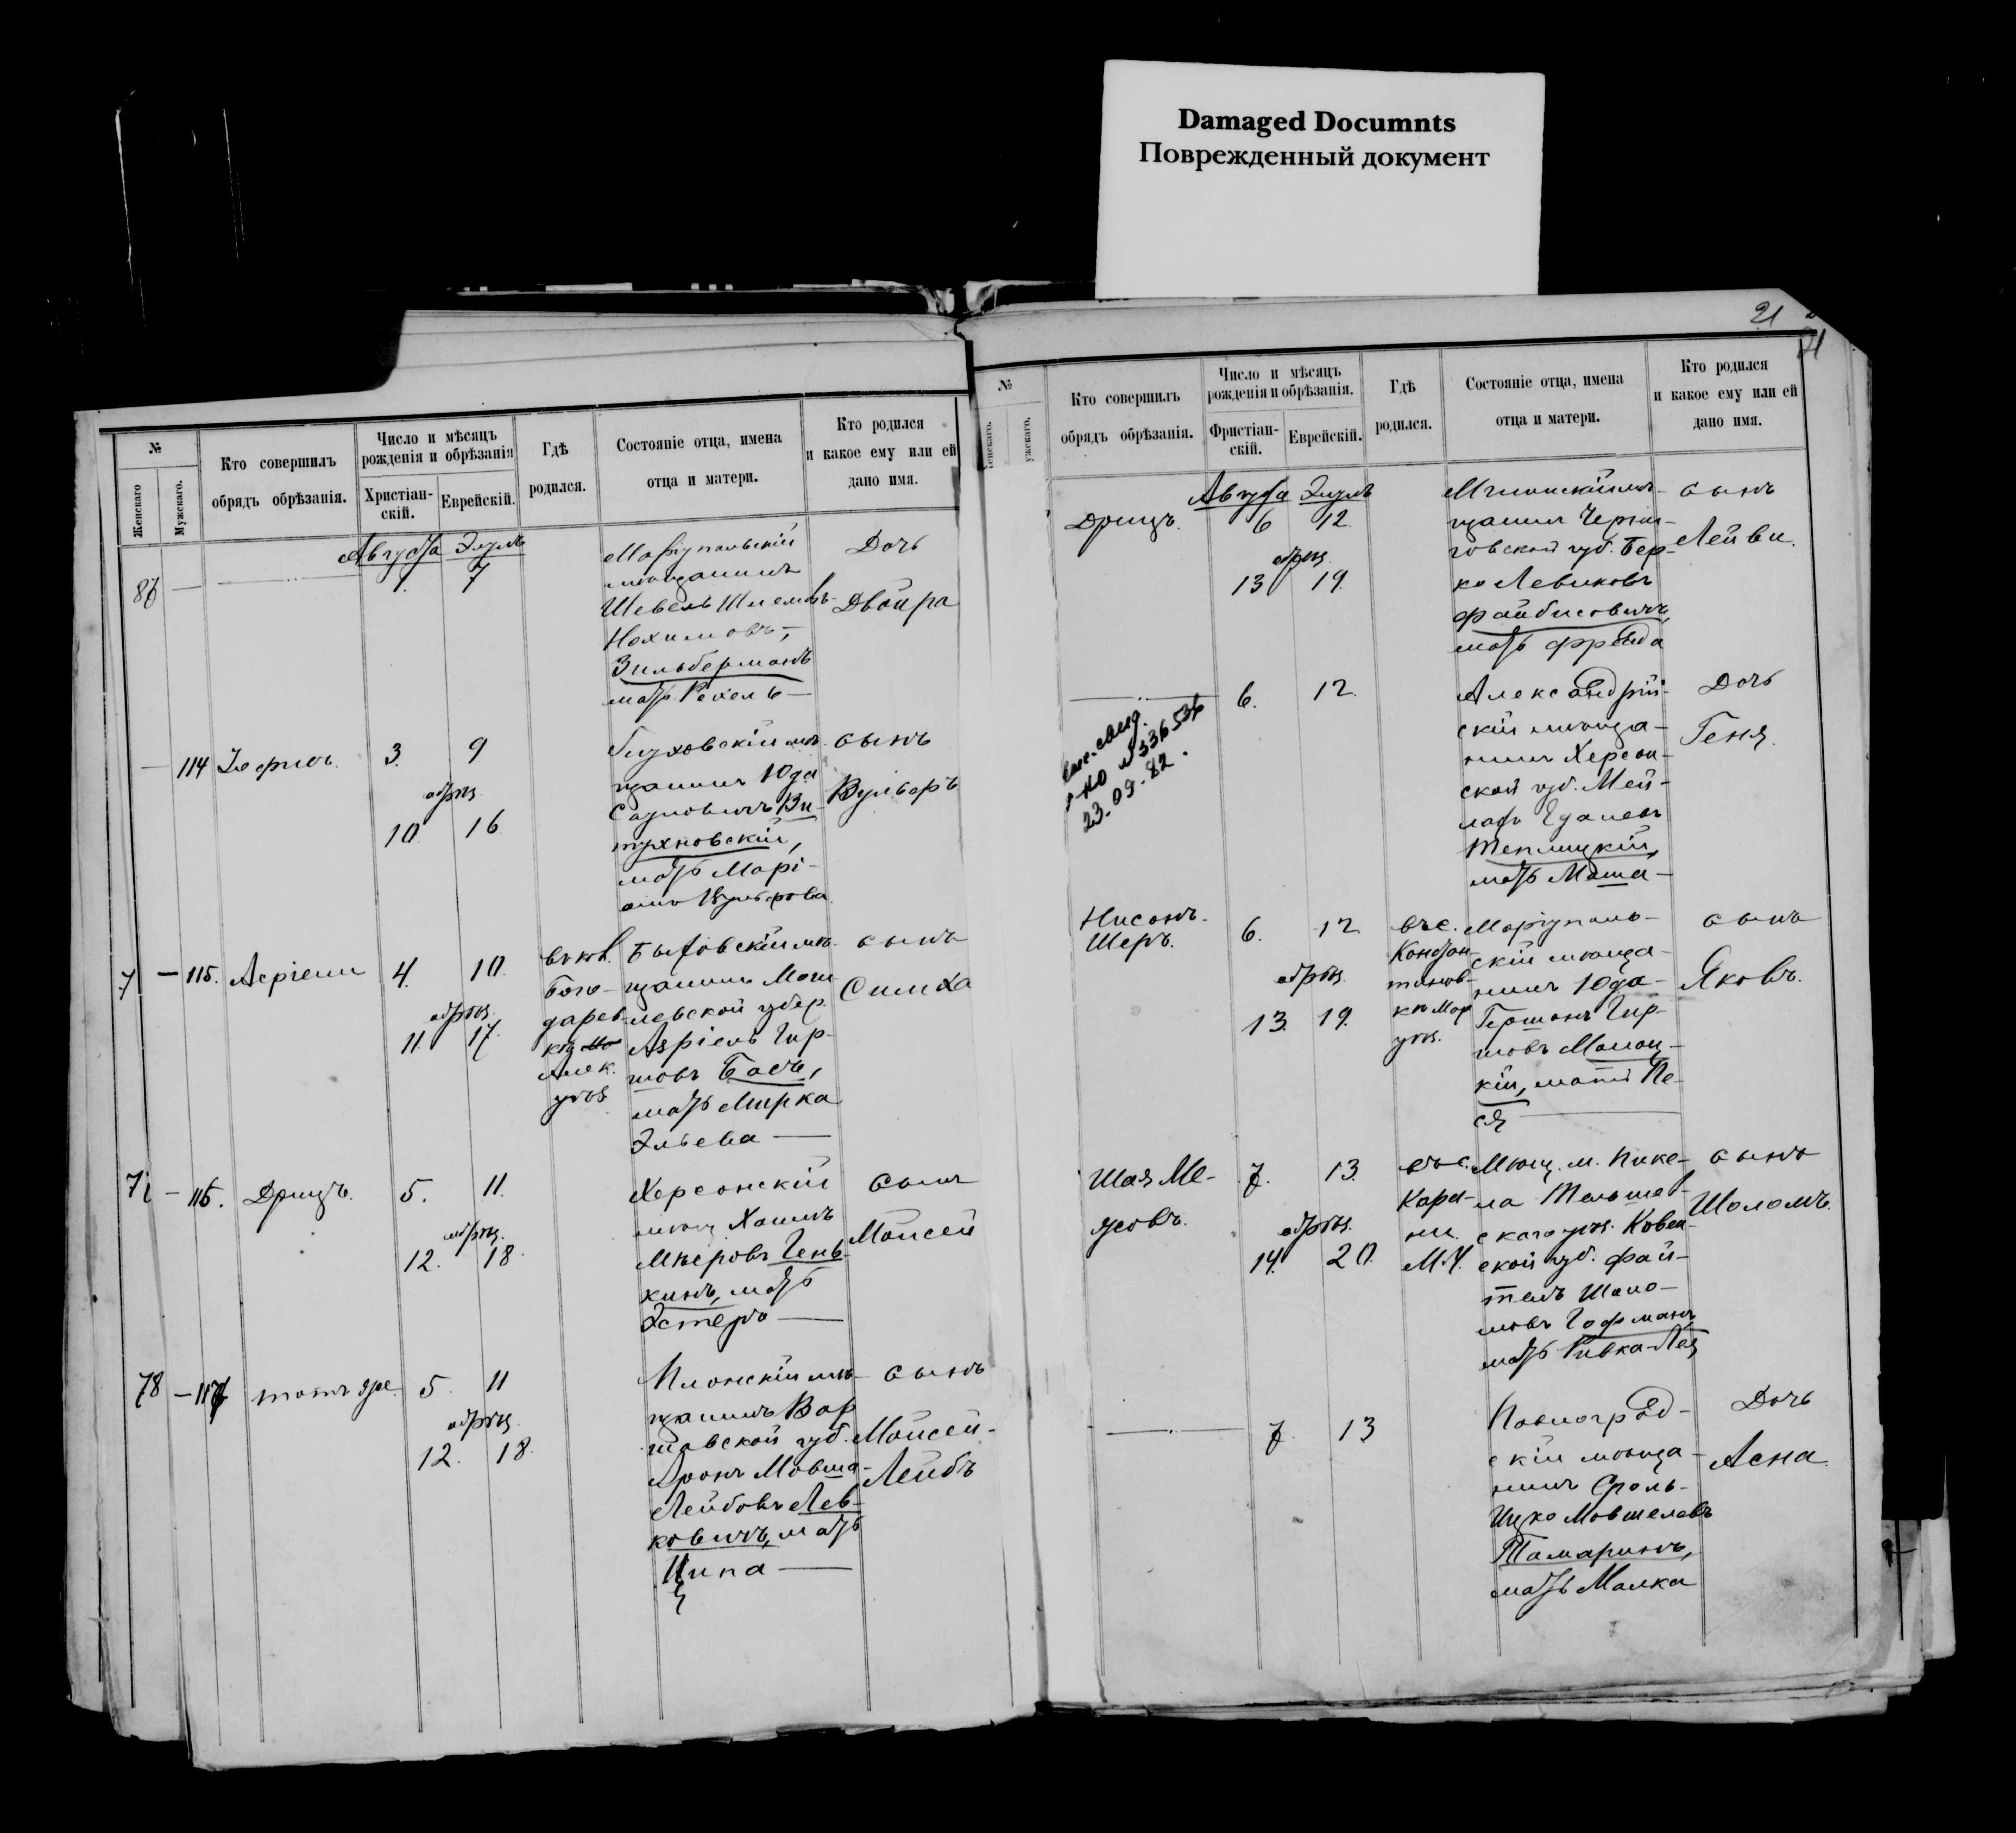 Damaged Documnts
Поврежденный документ
21
№
Женскаго
Мужскаго.
Кто совершилъ
обрядъ обрѣзанія.
Число и мѣсяцъ
рожденія и обрѣзанія
Христіан-
скій.
Еврейскій.
Гдѣ
родился.
Состояніе отца, имена
отца и матери.
Кто родился
и какое ему или ей
дано имя.
Августа Элулъ
1. 7
Маріупольскій
мѣщанинъ
Шевель Шлемовъ-
Нохимовъ,
Зильберманъ
мать Рехель
Дочь
Двойра
114
3. 9
обрѣз.
10. 16
Глуховскій мѣ-
щанинъ Юда
тухновскій,
мать Марі-
сынъ
Вульфъ
115. Асріели
4. 10
обрѣз.
11 17.
Бого-
даров-
Алек.
уѣз
щанинъ Моги
левской губер
Азріель Гир-
шовъ Басъ,
мать Мирка
Эльева
сынъ
Симха
116. Дрицъ.
5. 11.
обрѣз.
12. 18
Херсонскій
мѣщ Хаимъ
Мѣеровъ Ген-
кинъ, мать
Эстеръ
сынъ
Моисей
78 — 117 тотъ же.
5. 11
обрѣз.
12. 18.
Плонскій мѣ-
щанинъ Вар
шавской губ.
Аронъ Мовша-
Лейбовъ Лев-
ковичъ, мать
Ципа
сынъ
Моисей-
Лейбъ
№
Кто совершилъ
обрядъ обрѣзанія.
Число и мѣсяцъ
рожденія и обрѣзанія.
Фристіан-
скій.
Еврейскій.
Гдѣ
родился.
Состояніе отца, имена
отца и матери.
Кто родился
и какое ему или ей
дано имя.
Августа Элулъ
Дрицъ.
6 12.
обрѣз.
13 19.
Мглинскій мѣ-
щанинъ Черни-
говской губ. Бер-
ко Левиковъ
Файбисовичъ,
мать Фрейда
сынъ
Лейви.
6. 12.
№ 336536
23.09.82.
Александрій-
скій мѣща-
нинъ Херсон-
ской губ. Мей-
Теплицкій,
мать Маша
Дочь
Геня.
Нисонъ.
Шеръ.
6. 12
обрѣз.
13. 19.
въ с.
Констан-
тинов-
кѣ Мар
уѣз.
Маріуполь-
скій мѣща-
нинъ Юда-
Гершонъ Гир-
шовъ
кій, мать Пе-
ся
сынъ
Яковъ.
Шая Ме-
7. 13.
обрѣз.
14. 20.
въ с.
М.У.
Мѣщ. м. Пике-
ла Тельшев-
скаго уѣз. Ковен-
ской губ. Фай-
тель Шоло-
мовъ Гофманъ,
мать Ривка-Лея
сынъ
Шоломъ.
7 13
Павлоград-
скій мѣща-
нинъ Сроль-
Ицко Мовшелевъ
Тамаринъ,
мать Малка
Дочь
Асна.